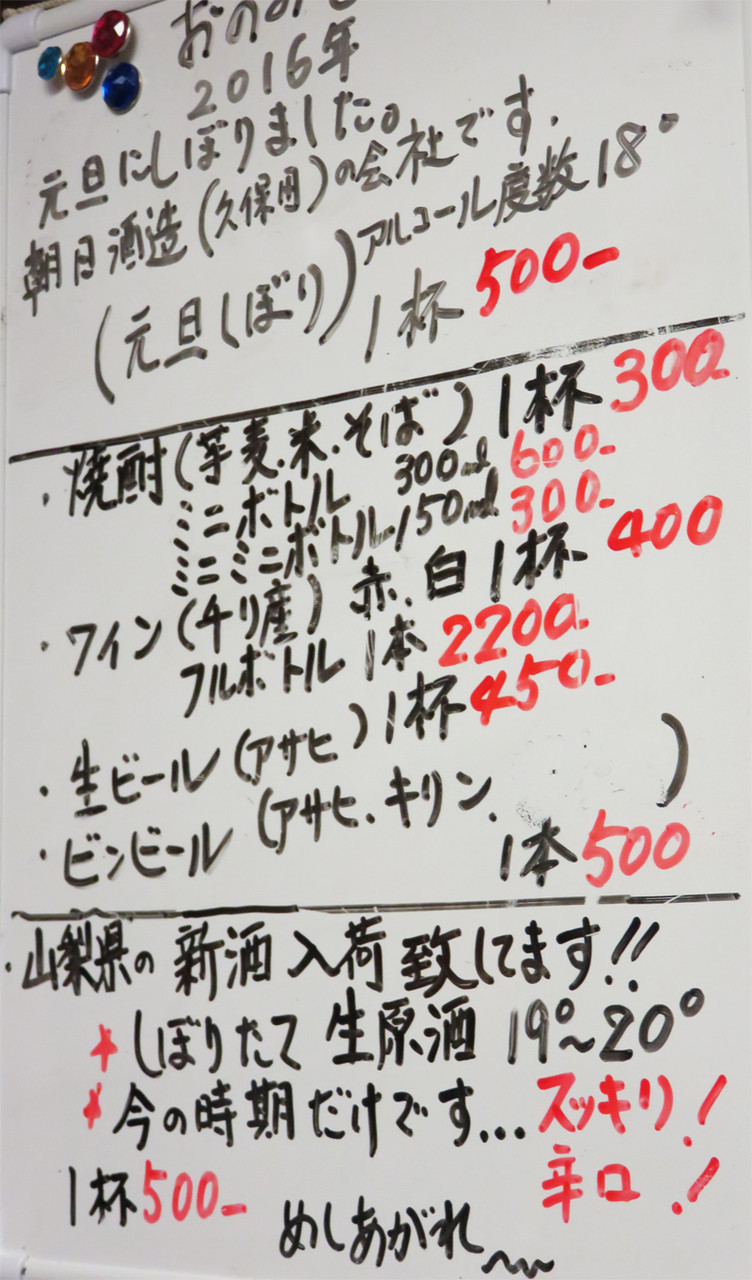 2016年
元旦にしぼりました。
朝日酒造(久保田)の会社です.
アルコール度数18°
(元旦しぼり)1杯500-
・焼酎(芋麦.米.そば)1杯300-
ミニボトル 300ml 600-
ミニミニボトル150ml 300-
・ワイン(チリ産)赤、白1杯400
フルボトル1本2200-
・生ビール(アサヒ)1杯450-
・ビンビール(アサヒ.キリン、)
1本500
・山梨県の新酒入荷致してます!!
*しぼりたて生原酒19°~20°
*今の時期だけです...スッキリ!
辛口!
1杯500-
めしあがれ~